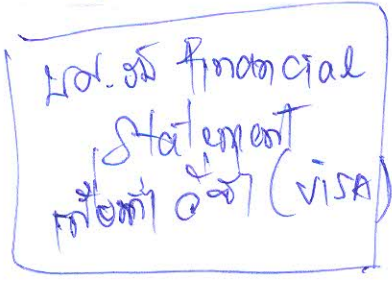 บศ. ขอ Financial
Statement
เพื่อทำ วีซ่า (VISA)